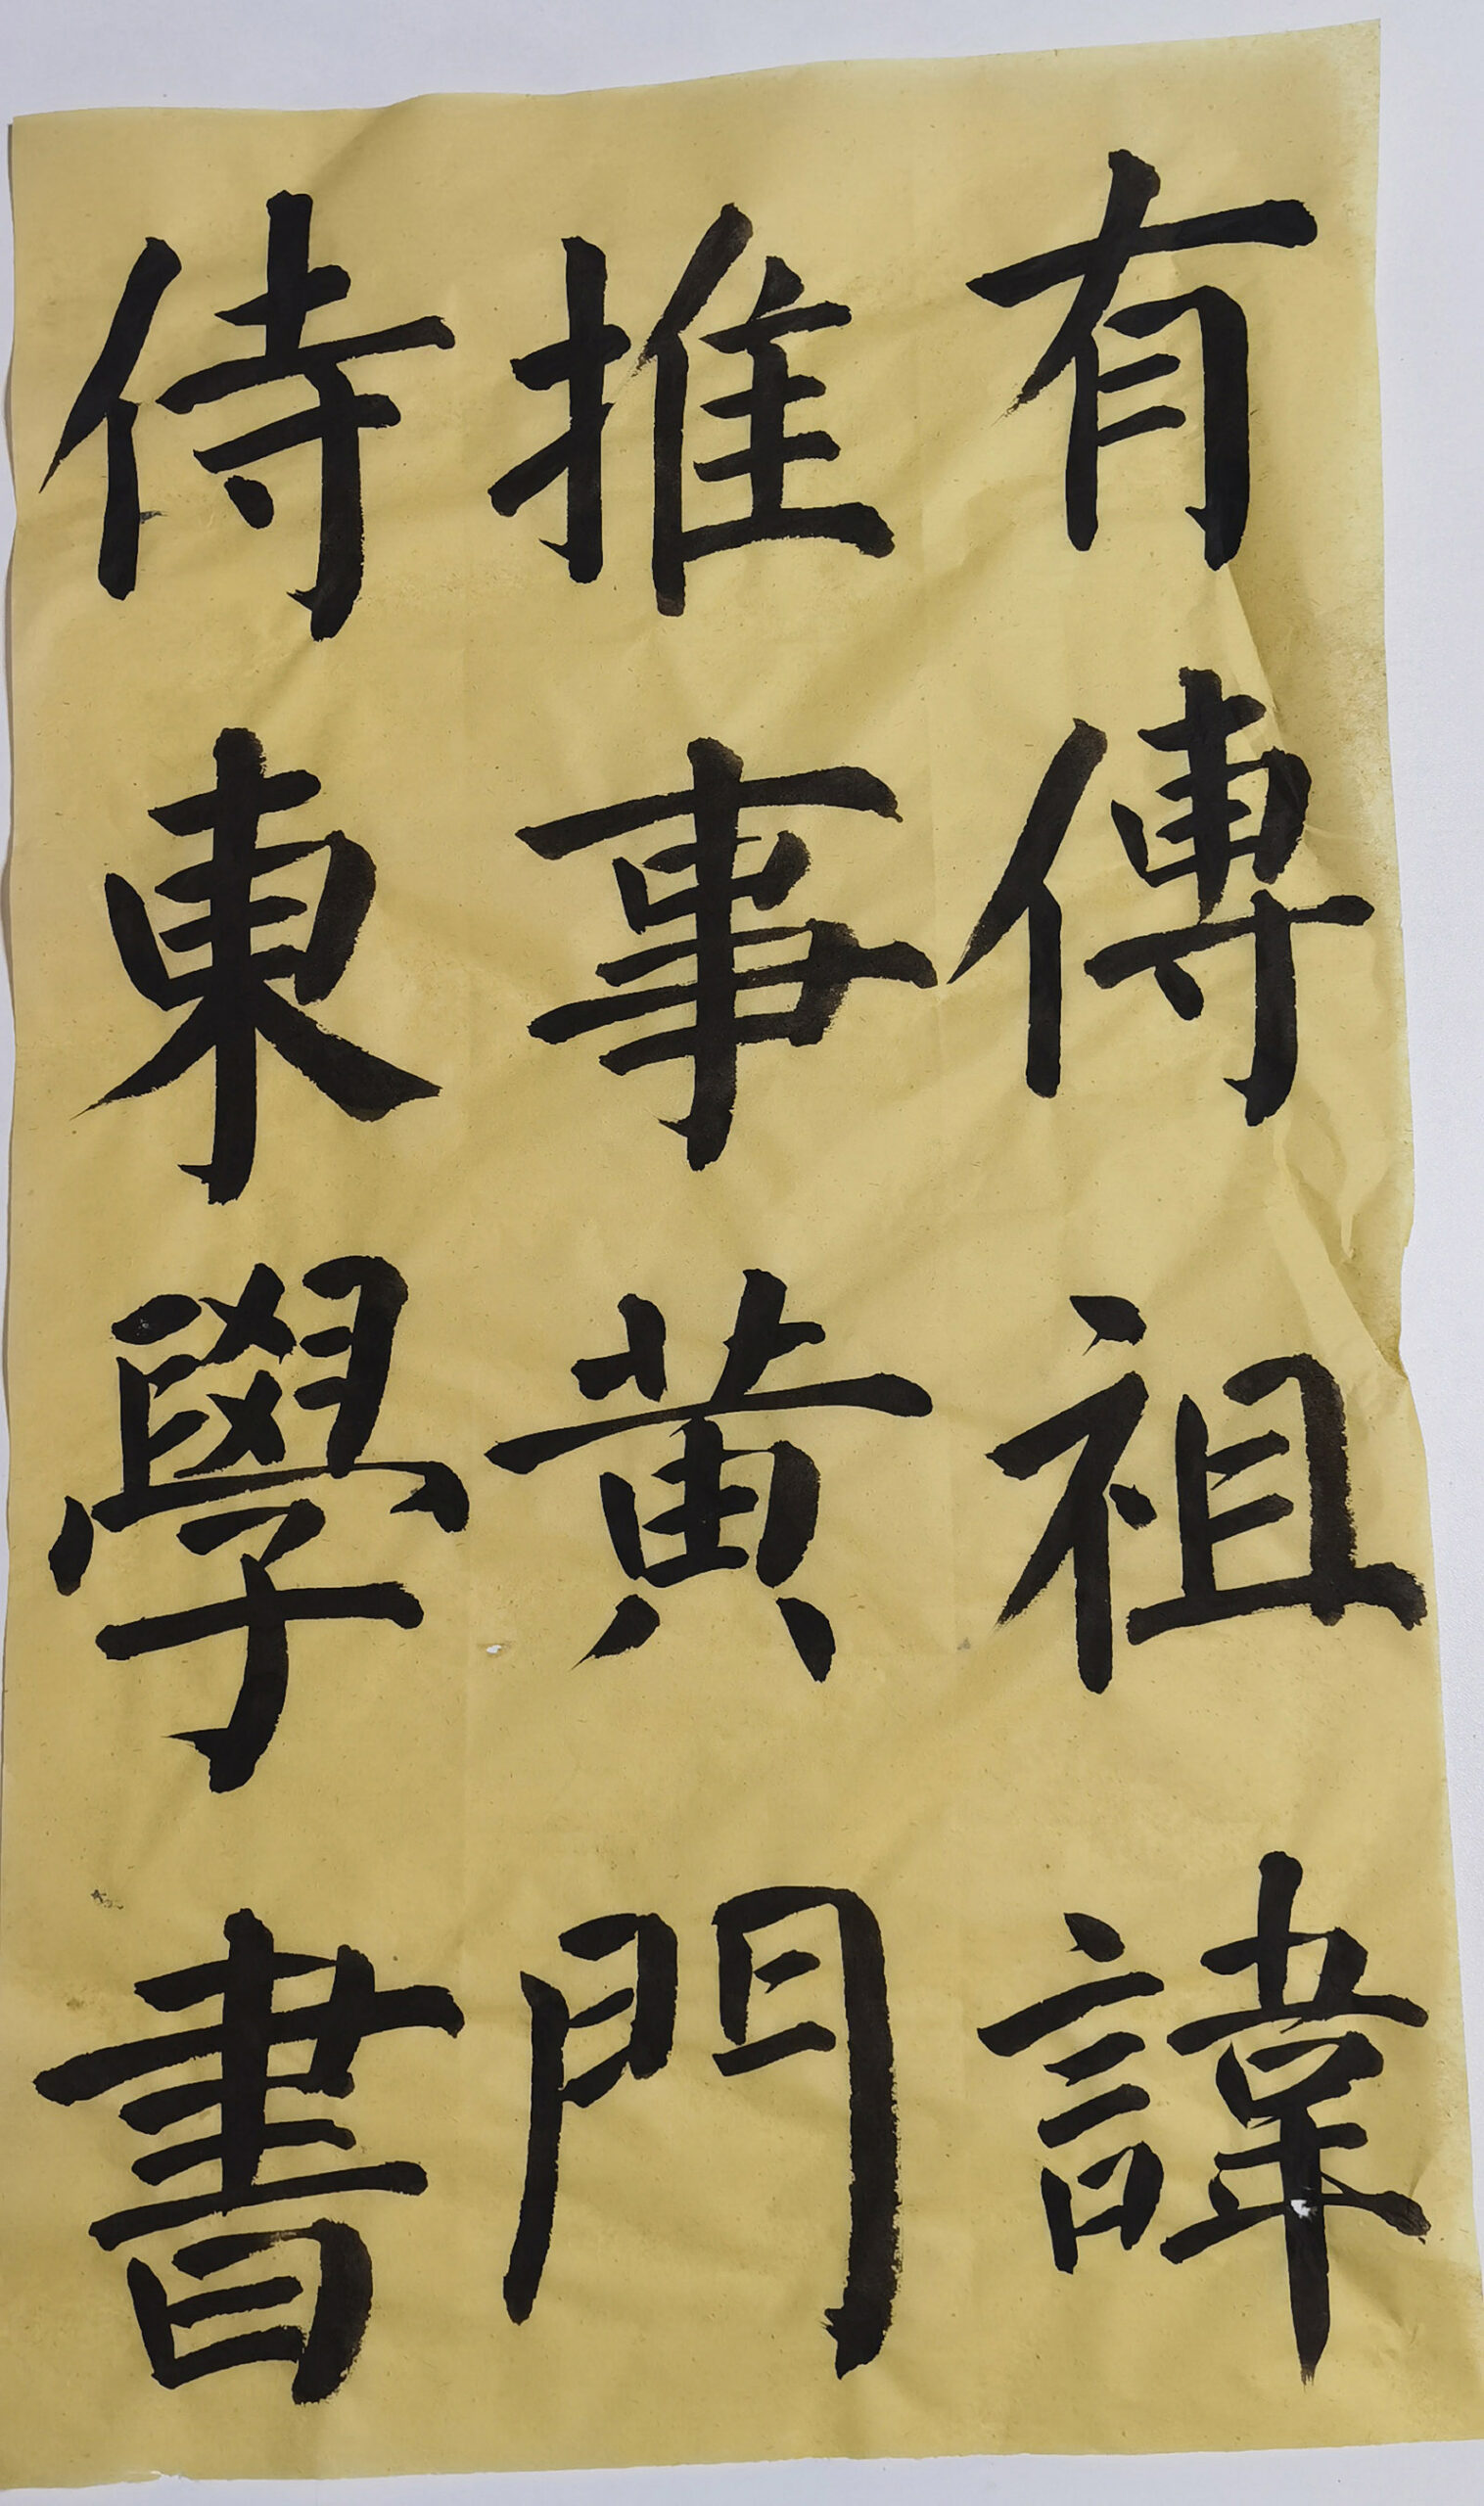 有傳祖諱
推事黄門
侍東學書